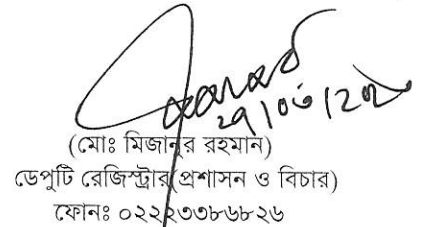 (মোঃ মিজানুর রহমান)
ডেপুটি রেজিস্ট্রার(প্রশাসন ও বিচার)
ফোনঃ ০২২২৩৩৮৬৮২৬